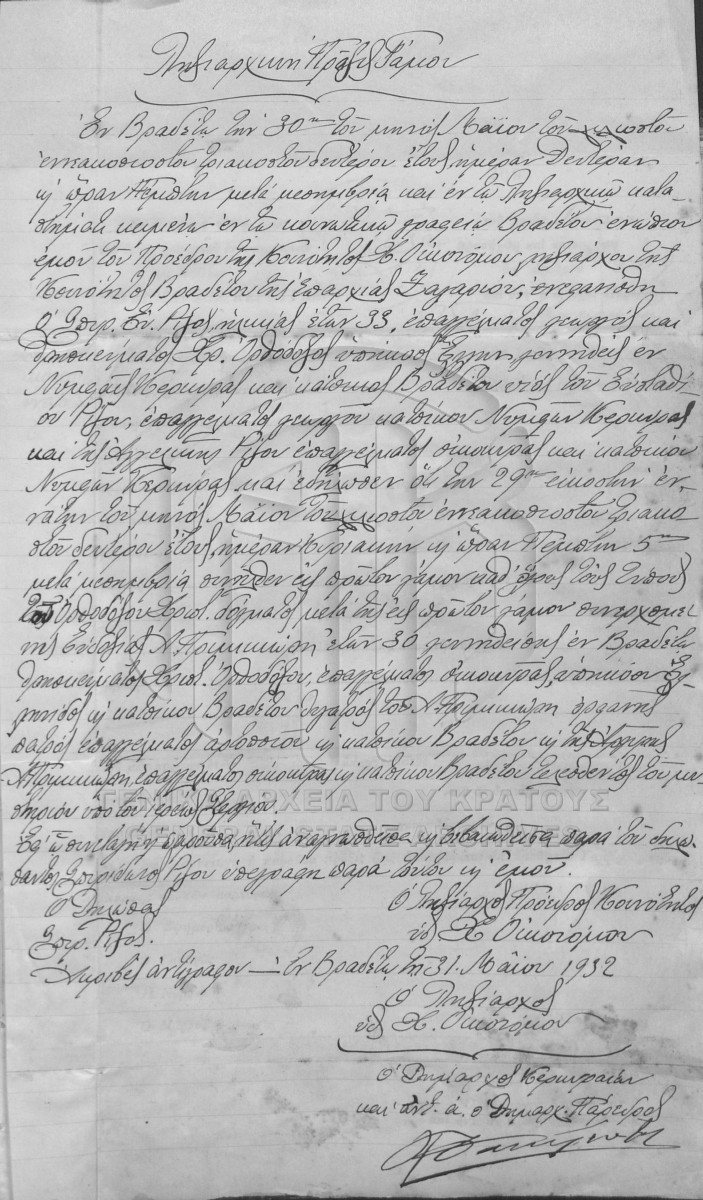 Ληξιαρχική Πράξις Γάμου
Ἐν Βραδέτῳ τῇ 30ῃ τοῦ μηνός Μαΐου τοῦ χιλιοστοῦ
ἐννεακοσιοστοῦ τριακοστοῦ δευτέρου ἔτους ἡμέραν Δευτέραν
κ ὥραν Πέμπτην μετά μεσημβρία καί ἐν τῷ Ληξιαρχικῷ κατα-
στήματι κειμένῳ ἐν τῷ κοινοτικῷ γραφείῳ Βραδέτου ἐνώπιον
ἐμοῦ τοῦ Προέδρου τῆς Κοινότητος Χ. Οἰκονόμου ληξιάρχου τῆς
Κοινότητος Βραδέτου τῆς ἐπαρχίας Ζαγορίου, ἐνεφανίσθη
ὁ Σπυρ. Εὐ. Ρίζος ἡλικίας ἐτῶν 33, ἐπαγγέλματος γεωργός καί
θρησκεύματος Χρ. Ὀρθόδοξος ὑπήκοος Ἕλλην γεννηθείς ἐν
Νυμφαῖς Κερκύρας καί κάτοικος Βραδέτου υἱός τοῦ Εὐσταθί-
ου Ρίζου, ἐπαγγέλματος γεωργοῦ κατοίκου Νυμφῶν Κερκύρας
καί τῆς Ἀγγελικῆς Ρίζου ἐπαγγέλματος οἰκοκυρᾶς καί κατοίκου
Νυμφῶν Κερκύρας καί ἐδήλωσεν ὅτι την 29ην εἰκοστήν ἐν-
νάτην τοῦ μηνός Μαΐου τοῦ χιλιοστοῦ ἐννεακοσιοστοῦ τριακο-
στοῦ δευτέρου ἔτους ἡμέραν Κυριακήν κ ὥραν Πέμπτην 5ην
μετά μεσημβρία συνῆλθεν εἰς πρῶτον γάμον καθ' ὅλους τούς τύπους
τοῦ Ὀρθοδόξου Χριστ. δόγματος μετά τῆς εἰς πρῶτον γάμον συνερχομέ-
νης Εὐδοξίας Α. ἐτῶν 30 γεννηθείσης ἐν Βραδέτῳ
θρησκεύματος Χριστ. Ὀρθοδόξου, ἐπαγγέλματος οἰκοκυρᾶς, ὑπηκόου Ἑλ-
ληνίδος κ κατοίκου Βραδέτου θυγατρός τοῦ Α.
πατρός ἐπαγγέλματος ἀρτοποιοῦ κ κατοίκου Βραδέτου κ τῆς
ἐπαγγέλματος οἰκοκυρᾶς κ κατοίκου Βραδέτου τελεσθέντος τοῦ μυ-
στηρίου ὑπό τοῦ ἱερέως
Ἐφ' ᾧ συνετάγη ἡ παροῦσα ἥτις ἀναγνωσθεῖσα κ βεβαιωθεῖσα παρά τοῦ δηλώ-
σαντος Σπυρίδωνος Ρίζου ὑπεγράφη παρά τούτου κ ἐμοῦ.
Ὁ Δηλώσας Ὁ Ληξίαρχος Πρόεδρος Κοινότητος
Σπυρ. Ρίζος. Χ. Οἰκονόμου
Ἀκριβές ἀντίγραφον — ἐν Βραδέτῳ τῇ 31 Μαΐου 1932
Ὁ Ληξίαρχος
Χ. Οἰκονόμου
Ὁ Δήμαρχος Κερκυραίων
καί ἀντ. ἀ. ὁ Δημαρχ. Πάρεδρος
ΓΕΝΙΚΑ ΑΡΧΕΙΑ ΤΟΥ ΚΡΑΤΟΥΣ